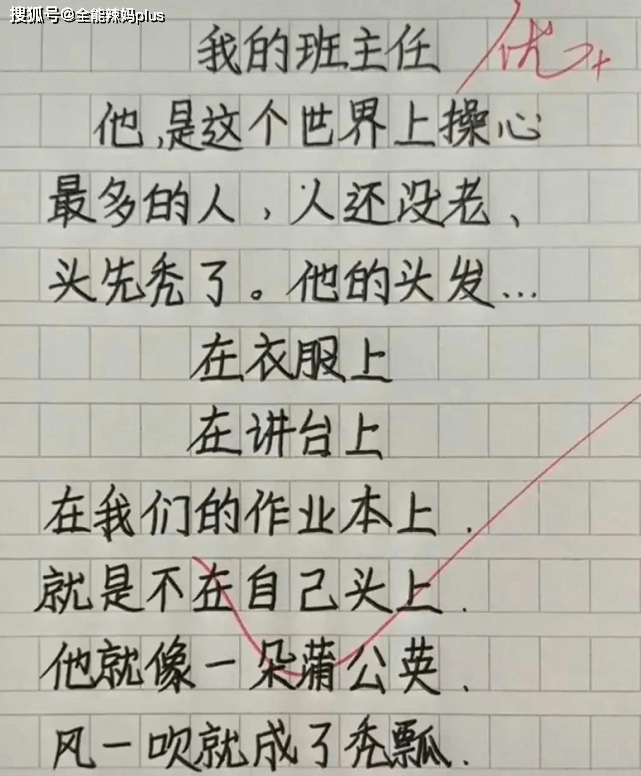 搜狐号@全能辣妈plus
我的班主任 优+
他,是这个世界上操心
最多的人,人还没老、
头先秃了。他的头发...
在衣服上
在讲台上
在我们的作业本上.
就是不在自己头上.
他就像一朵蒲公英.
风一吹就成了秃瓢.